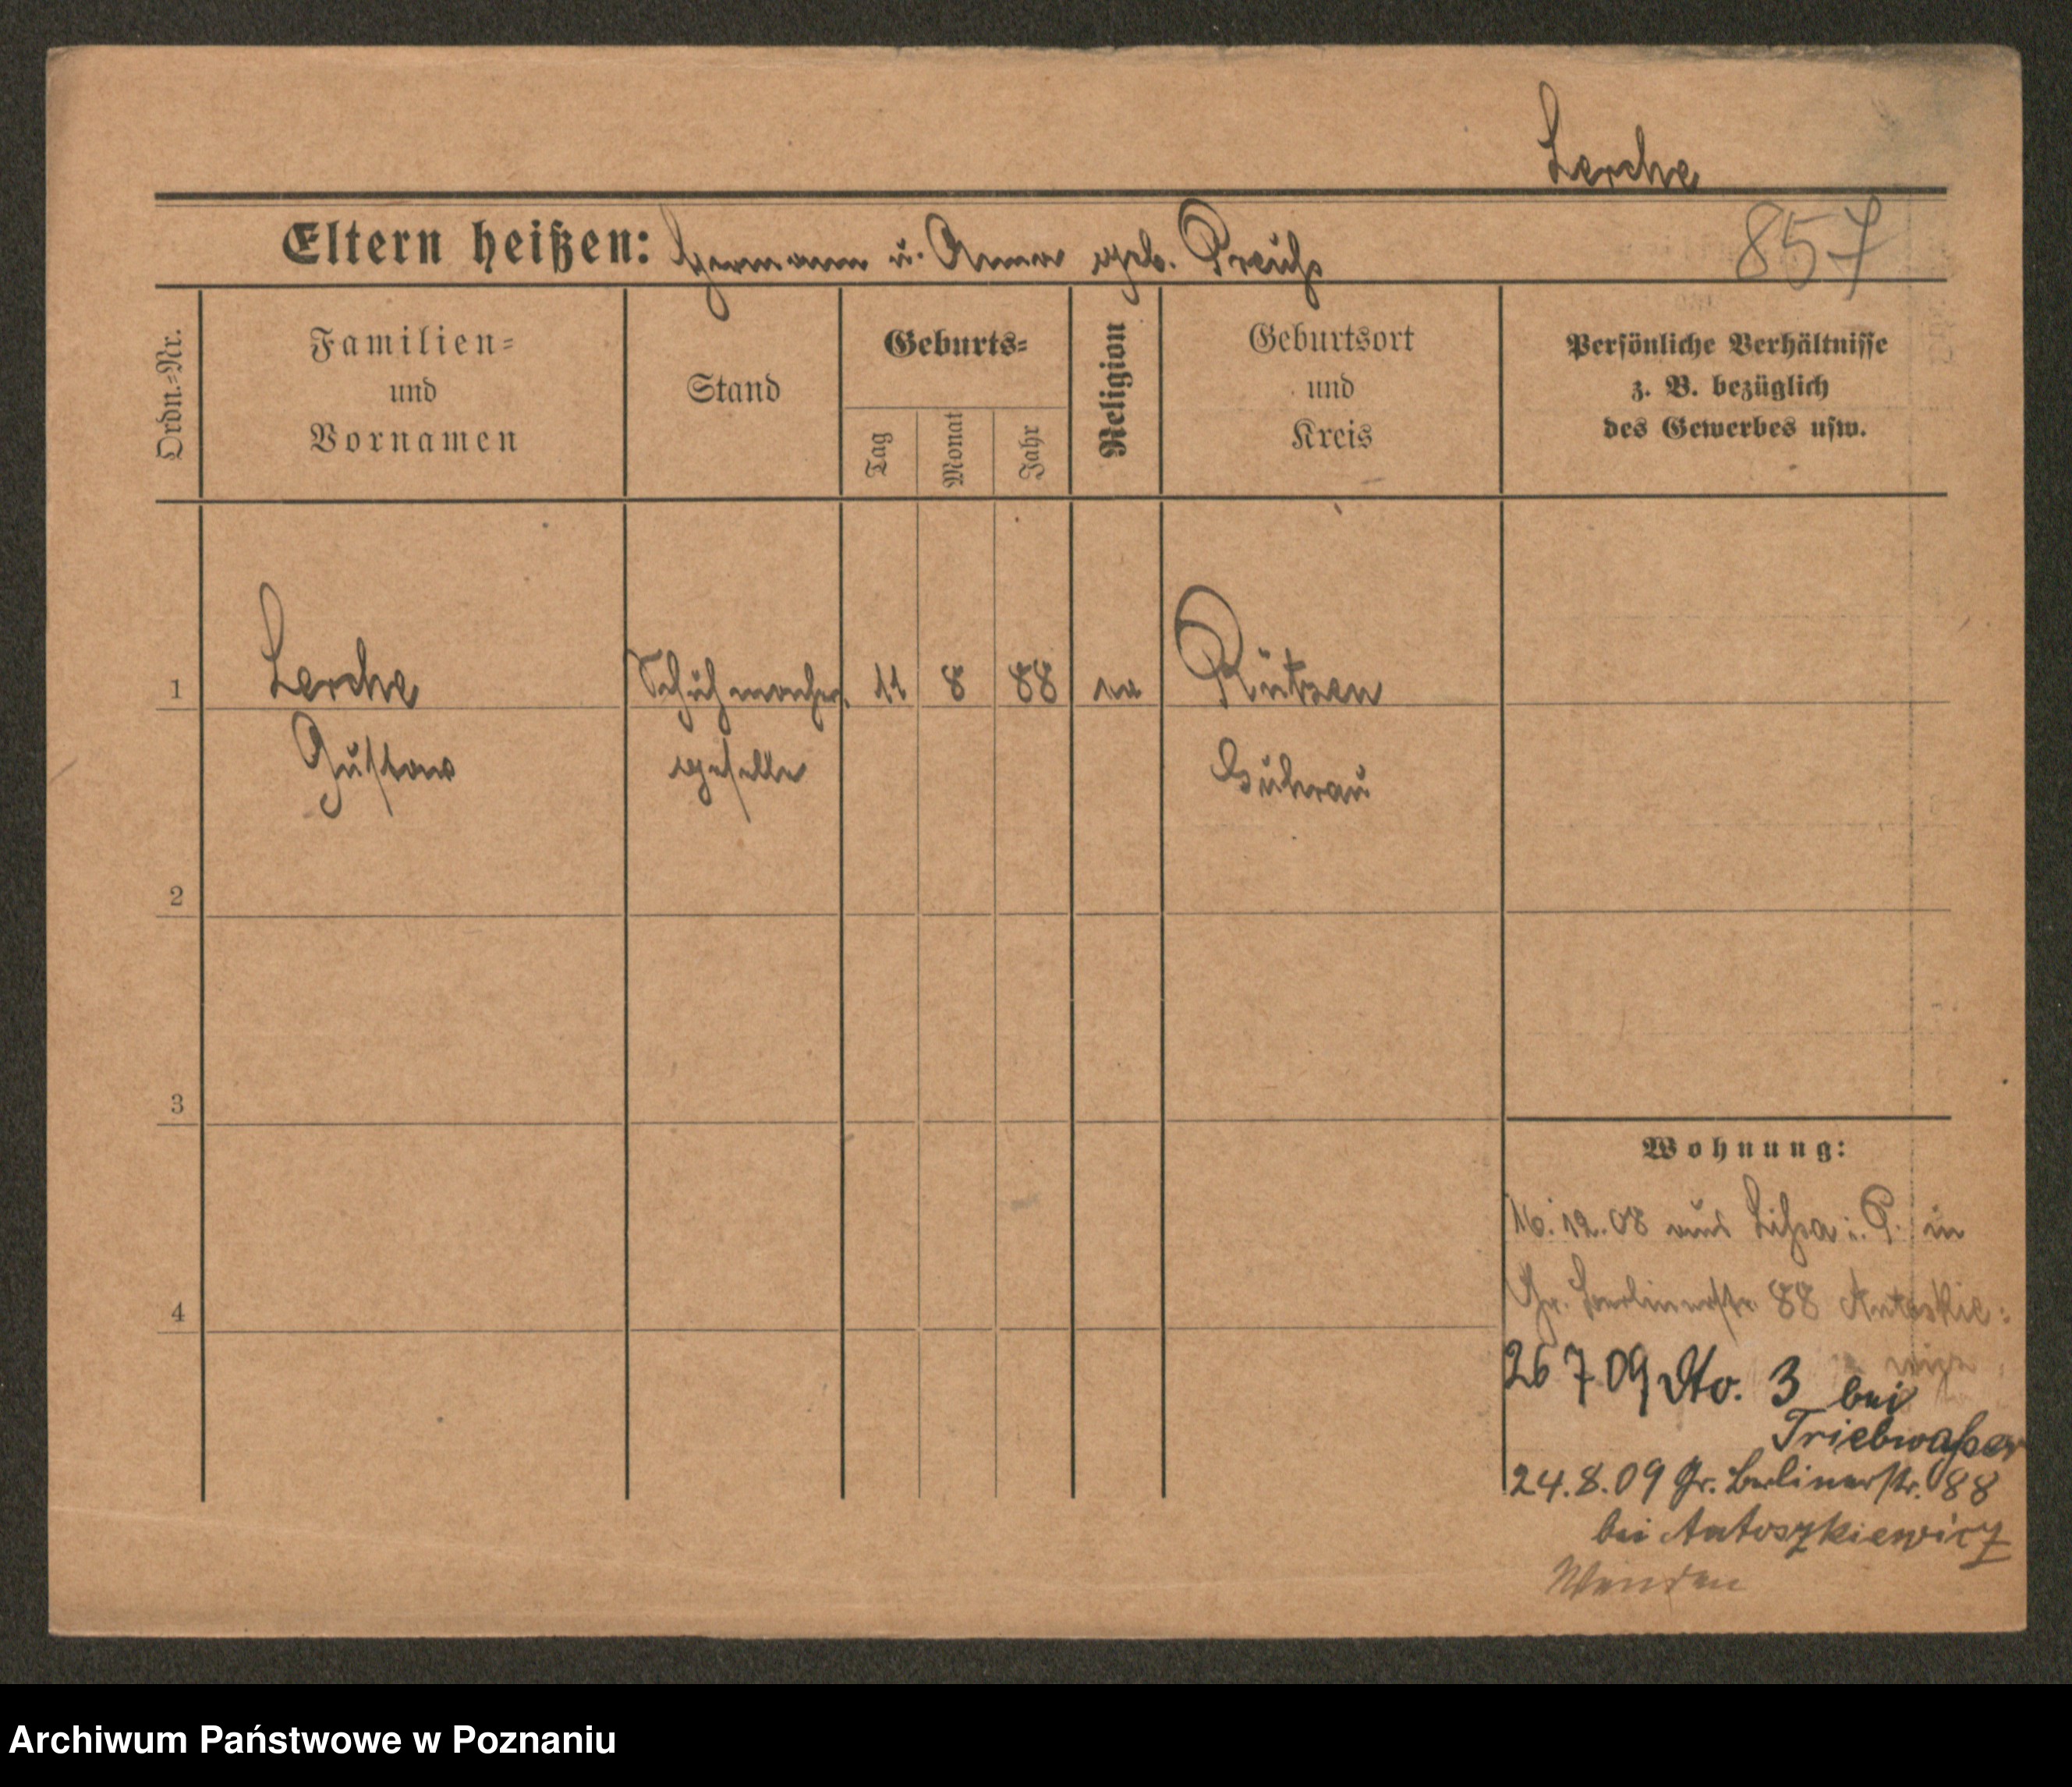 Lerche
Eltern heißen: Hermann u. Anna geb. Preuß
857
Ordn.-Nr.
Familien-
und
Vornamen
Stand
Geburts-
Tag
Monat
Jahr
Religion
Geburtsort
und
Kreis
Persönliche Verhältnisse
z. B. bezüglich
des Gewerbes usw.
1 Lerche Schuhmacher 11 8 88 Rützen
Gustav geselle Guhrau
2
3
4
Wohnung:
16.12.08 aus Lissa i. P. in
Gr. Berlinerstr. 88 Antoskie:
wicz
26 7 09 dto. 3 bei
Triebwaßer
24.8.09 Gr. Berlinerstr. 88
bei Antoszkiewicz
Wenden
Archiwum Państwowe w Poznaniu